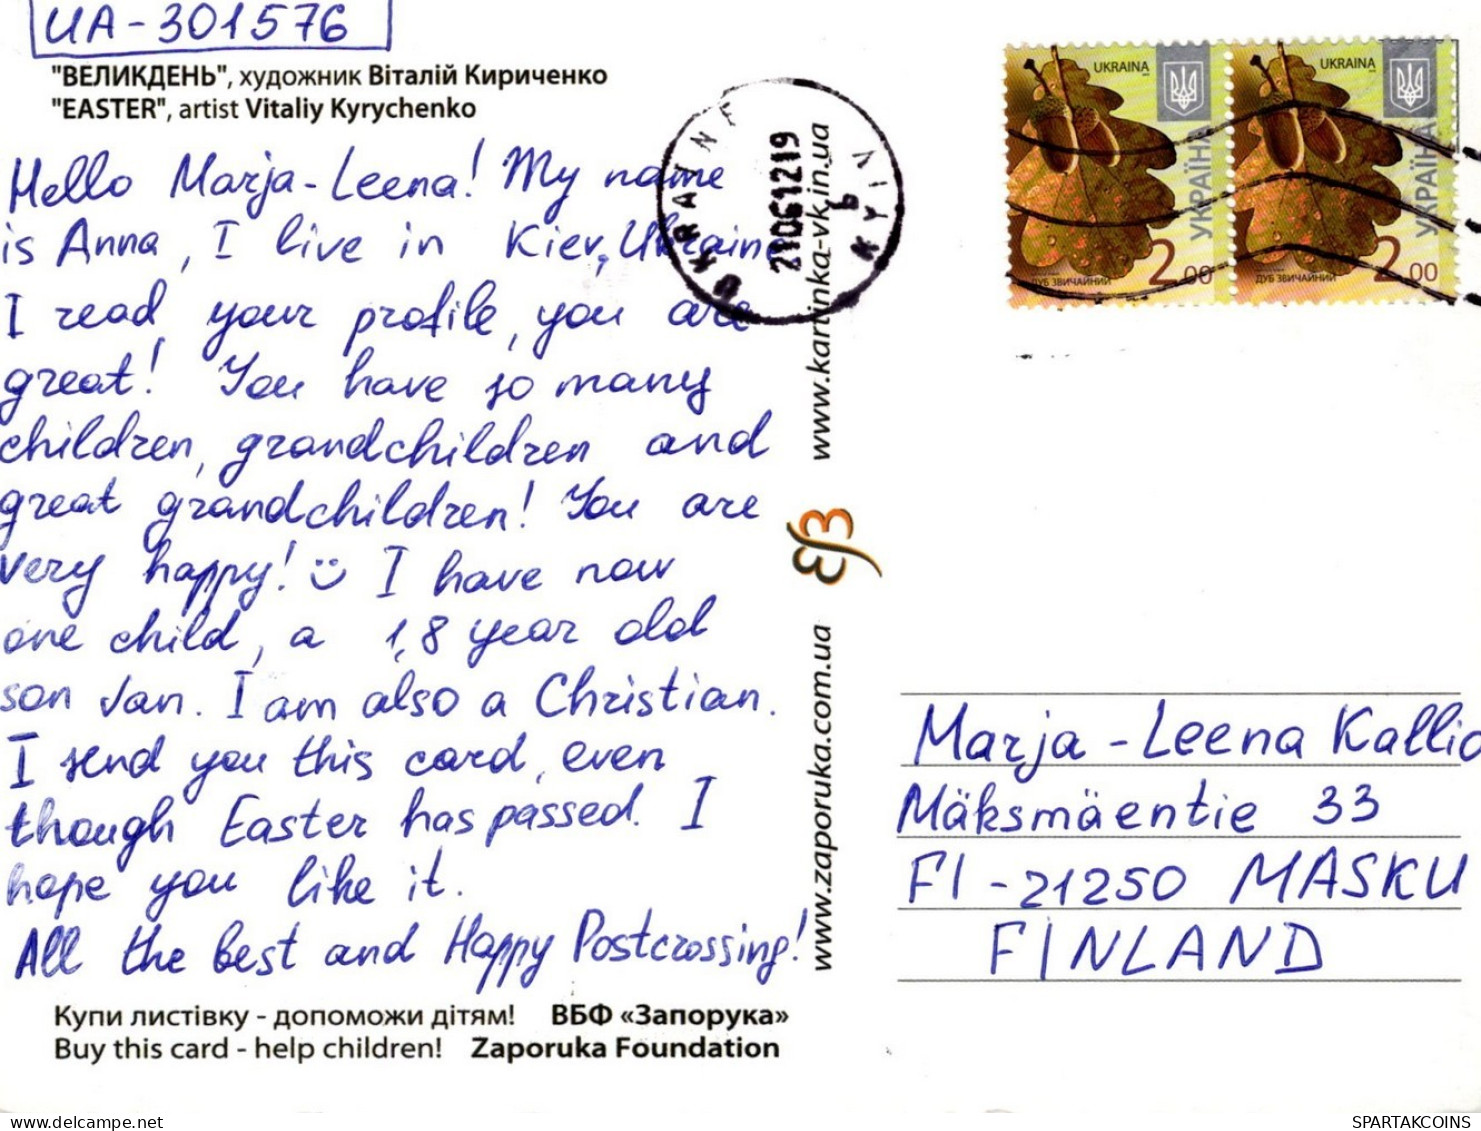 UA-301576
"ВЕЛИКДЕНЬ", художник Віталій Кириченко
"EASTER", artist Vitaliy Kyrychenko
Hello Marja-Leena! My name
is Anna, I live in Kiev, Ukraine
I read your profile, you are
great! You have so many
children, grandchildren and
great grandchildren! You are
very happy! I have now
one child, a 1,8 year old
son Jan. I am also a Christian.
I send you this card, even
though Easter has passed. I
hope you like it.
All the best and Happy Postcrossing!
Купи листівку - допоможи дітям! ВБФ «Запорука»
Buy this card - help children! Zaporuka Foundation
UKRAINE
21061219
KYIV
www.kartinka-vk.in.ua
www.zaporuka.com.ua
UKRAINA
УКРАЇНА
2.00
ДУБ ЗВИЧАЙНИЙ
UKRAINA
УКРАЇНА
2.00
ДУБ ЗВИЧАЙНИЙ
Marja-Leena Kallio
Mäksmäentie 33
FI-21250 MASKU
FINLAND
SPARTAKCOINS